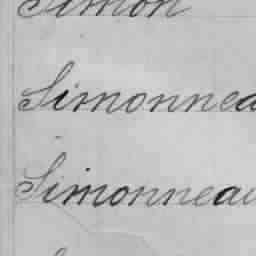 Simon
Simonnea
Simonneau